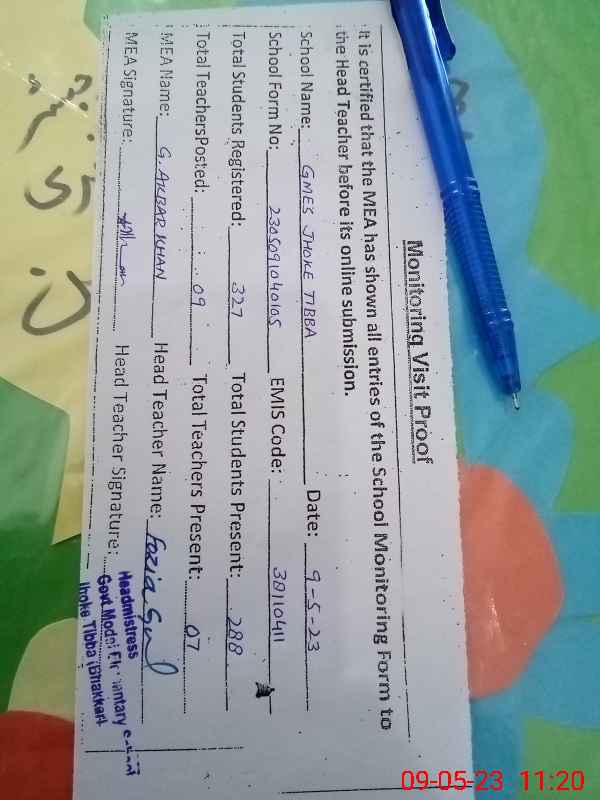 Monitoring Visit Proof
It is certified that the MEA has shown all entries of the School Monitoring Form to
the Head Teacher before its online submission.
School Name: GMES JHOKE TIBBA Date: 9-5-23
School Form No: 2305091040105 EMIS Code: 38110411
Total Students Registered: 327 Total Students Present: 288
Total TeachersPosted: 09 Total Teachers Present: 07
MEA Name: G. AKBAR KHAN Head Teacher Name: Fozia Gul
MEA Signature: Head Teacher Signature:
Headmistress
Govt Model
Jhoke Tibba (Bhakkar)
09-05-23 11:20